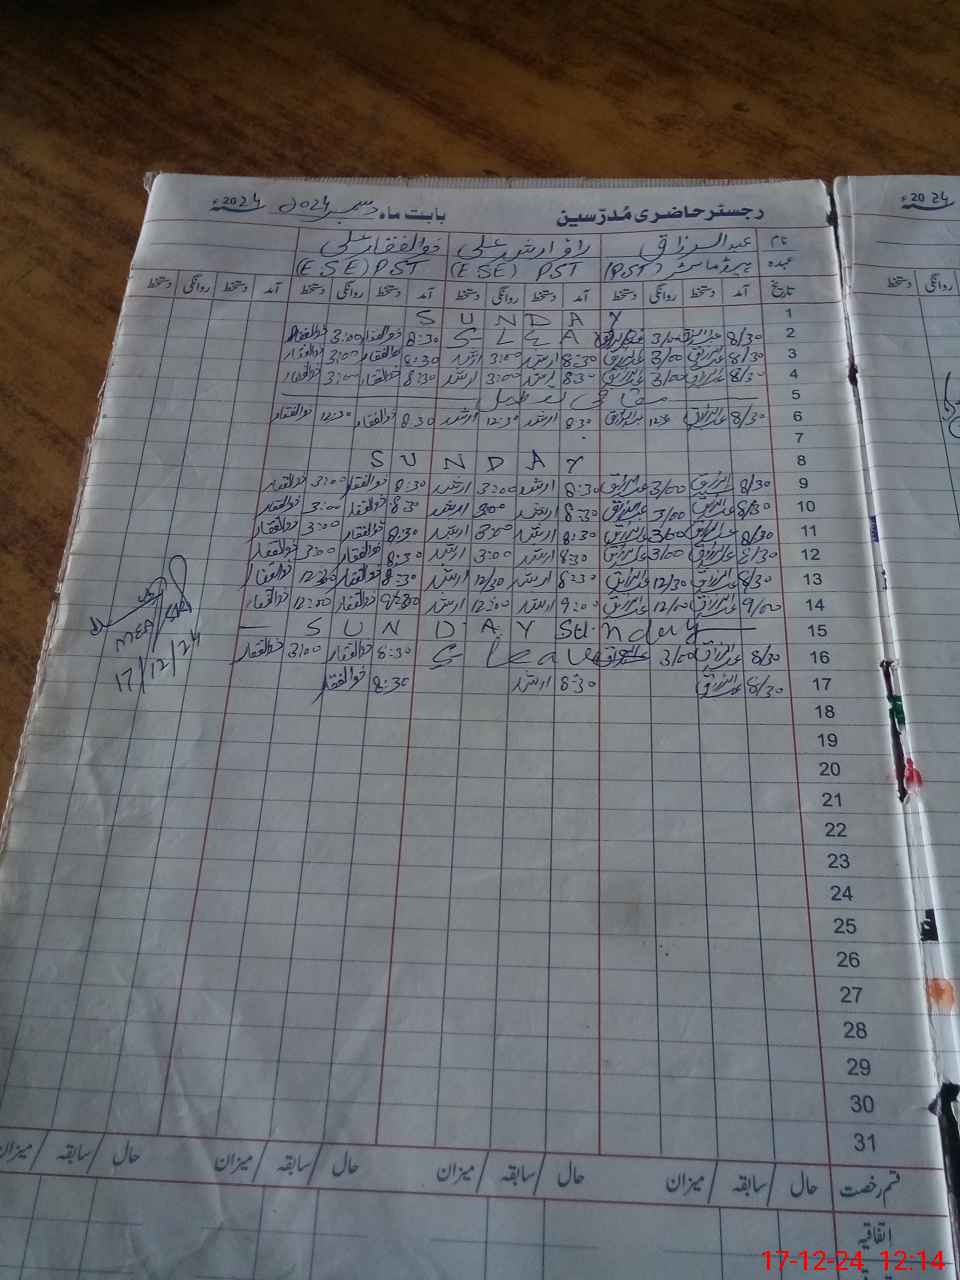 رجسٹر حاضری مُدرّسین بابت ماہ دسمبر 2024 2024ء
2024ء
نام عبدالرزاق راؤ ارشد علی ذوالفقار علی
عہدہ ہیڈ ماسٹر (PST) PST (ESE) PST (ESE)
تاریخ آمد دستخط روانگی دستخط آمد دستخط روانگی دستخط آمد دستخط روانگی دستخط آمد دستخط روانگی دستخط
1 SUNDAY
2 8/30 عبدالرزاق 3/00 عبدالرزاق 8:30 ذوالفقار 3:00 ذوالفقار
3 8/30 عبدالرزاق 3/00 عبدالرزاق 8:30 ارشد 3:00 ارشد 8:30 ذوالفقار 3:00 ذوالفقار
4 8/30 عبدالرزاق 3/00 عبدالرزاق 8:30 ارشد 3:00 ارشد 8:30 ذوالفقار 3:00 ذوالفقار
5 مقامی تعطیل
6 8/30 عبدالرزاق عبدالرزاق 8:30 ارشد 12:30 ارشد 8:30 ذوالفقار 12:30 ذوالفقار
7
8 SUNDAY
9 8/30 عبدالرزاق 3/00 عبدالرزاق 8:30 ارشد 3:00 ارشد 8:30 ذوالفقار 3:00 ذوالفقار
10 8/30 عبدالرزاق 3/00 عبدالرزاق 8:30 ارشد 3:00 ارشد 8:30 ذوالفقار 3:00 ذوالفقار
11 8/30 عبدالرزاق 3/00 عبدالرزاق 8:30 ارشد 3:00 ارشد 8:30 ذوالفقار 3:00 ذوالفقار
12 8/30 عبدالرزاق 3/00 عبدالرزاق 8:30 ارشد 3:00 ارشد 8:30 ذوالفقار 3:00 ذوالفقار
13 8/30 عبدالرزاق 12/30 عبدالرزاق 8:30 ارشد 12/30 ارشد 8:30 ذوالفقار 12:30 ذوالفقار
14 9/00 عبدالرزاق 12/00 عبدالرزاق 9:00 ارشد 12:00 ارشد ذوالفقار 12:00 ذوالفقار
15 SUNDAY Sunday
16 8/30 عبدالرزاق 3/00 عبدالرزاق S leave 8:30 ذوالفقار 3:00 ذوالفقار
17 8/30 عبدالرزاق 8:30 ارشد 8:30 ذوالفقار
MEA
17/12/24
18
19
20
21
22
23
24
25
26
27
28
29
30
31
قسم رخصت حال / سابقہ / میزان حال / سابقہ / میزان حال / سابقہ / میزان حال / سابقہ / میزان
اتفاقیہ
17-12-24 12:14